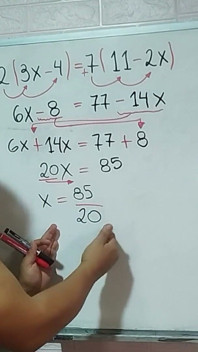 2(3x-4)=+7(11-2x)
6x-8 = 77-14x
6x+14x = 77+8
20x = 85
x = 85/20